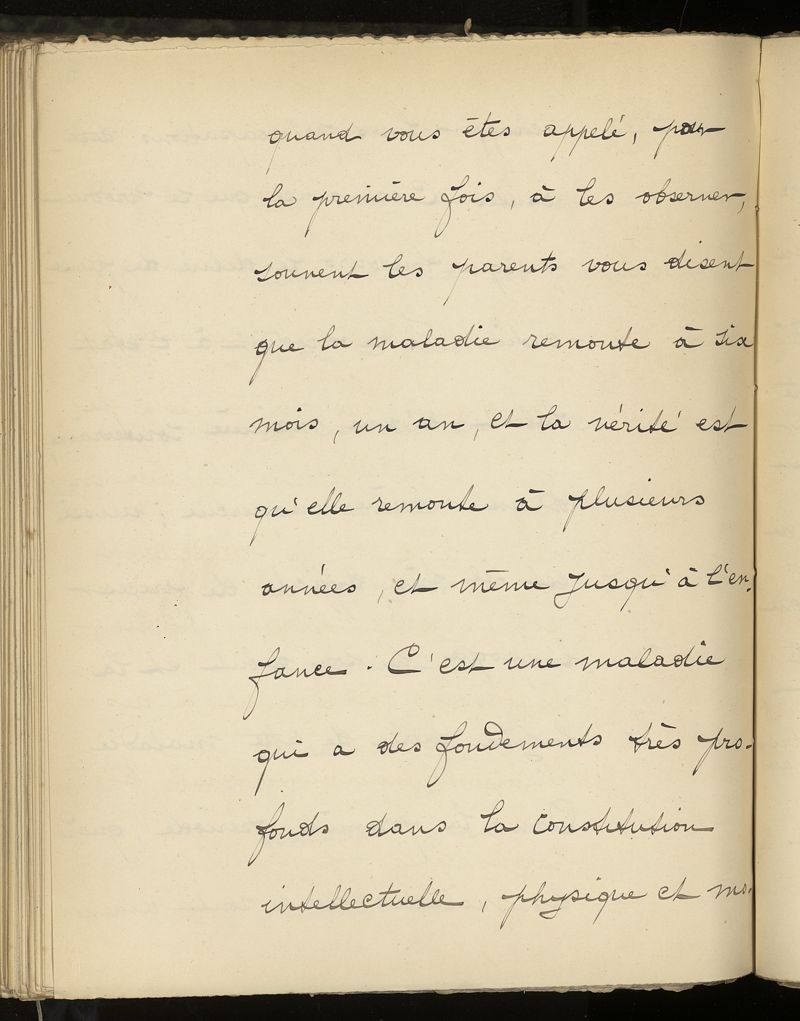 quand vous êtes appelé, pour
la première fois, à les observer,
souvent les parents vous disent
que la maladie remonte à six
mois, un an, et la vérité est
qu'elle remonte à plusieurs
années, et même jusqu'à l'en-
fance. C'est une maladie
qui a des fondements très pro-
fonds dans la constitution
intellectuelle, physique et mo-